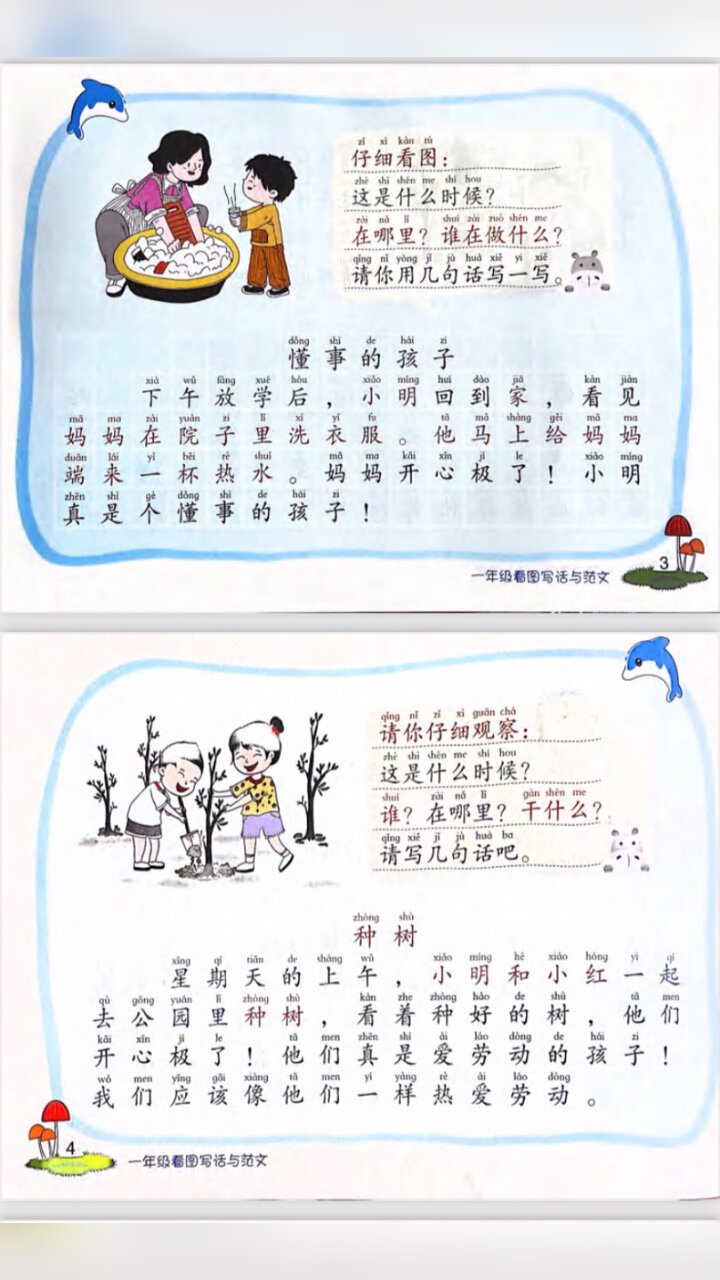 zǐ xì kàn tú
仔细看图：
zhè shì shén me shí hou
这是什么时候？
zài nǎ lǐ shuí zài zuò shén me
在哪里？谁在做什么？
qǐng nǐ yòng jǐ jù huà xiě yi xiě
请你用几句话写一写。
dǒng shì de hái zi
懂事的孩子
xià wǔ fàng xué hòu xiǎo míng huí dào jiā kàn jiàn
下午放学后，小明回到家，看见
mā ma zài yuàn zi lǐ xǐ yī fu tā mǎ shàng gěi mā ma
妈妈在院子里洗衣服。他马上给妈妈
duān lái yì bēi rè shuǐ mā ma kāi xīn jí le xiǎo míng
端来一杯热水。妈妈开心极了！小明
zhēn shì gè dǒng shì de hái zi
真是个懂事的孩子！
3
一年级看图写话与范文
qǐng nǐ zǐ xì guān chá
请你仔细观察：
zhè shì shén me shí hou
这是什么时候？
shuí zài nǎ lǐ gàn shén me
谁？在哪里？干什么？
qǐng xiě jǐ jù huà ba
请写几句话吧。
zhòng shù
种树
xīng qī tiān de shàng wǔ xiǎo míng hé xiǎo hóng yì qǐ
星期天的上午，小明和小红一起
qù gōng yuán lǐ zhòng shù kàn zhe zhòng hǎo de shù tā men
去公园里种树，看着种好的树，他们
kāi xīn jí le tā men zhēn shì ài láo dòng de hái zi
开心极了！他们真是爱劳动的孩子！
wǒ men yīng gāi xiàng tā men yí yàng rè ài láo dòng
我们应该像他们一样热爱劳动。
4
一年级看图写话与范文